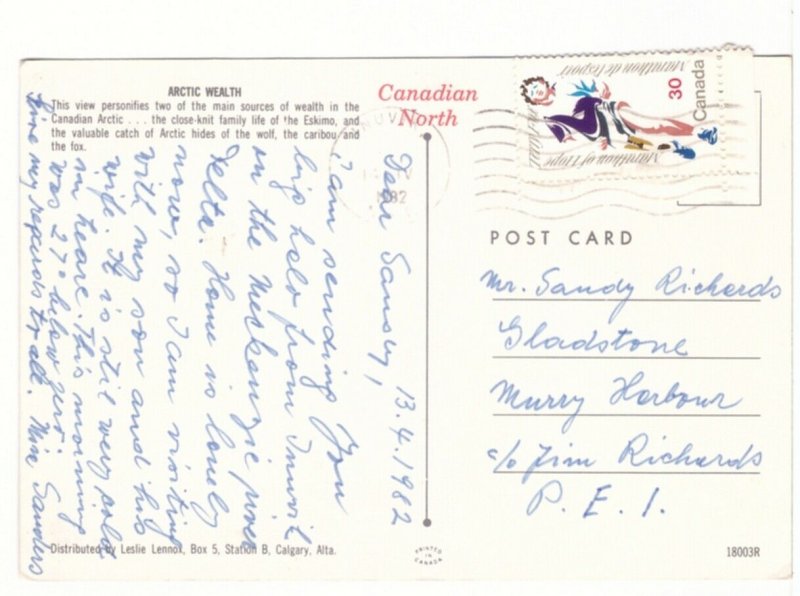 ARCTIC WEALTH
This view personifies two of the main sources of wealth in the
Canadian Arctic . . . the close-knit family life of the Eskimo, and
the valuable catch of Arctic hides of the wolf, the caribou and
the fox.
Canadian
North
INUVI
1982
30
Canada
Marathon of Hope
Marathon de l'espoir
13.4.1982
Dear Sandy,
I am sending you
big helo from Inuvik
on the Mackenzie river
Delta. Home is lonely
now, so I am visiting
with my son and his
wife. It is still very cold
in heare. This morning
was 27° below zero.
Give my regards to all. Sanders
POST CARD
Mr. Sandy Richards
Gladstone
Murry Harbour
c/o Jim Richards
P. E. I.
Distributed by Leslie Lennox, Box 5, Station B, Calgary, Alta.
PRINTED
IN
CANADA
18003R